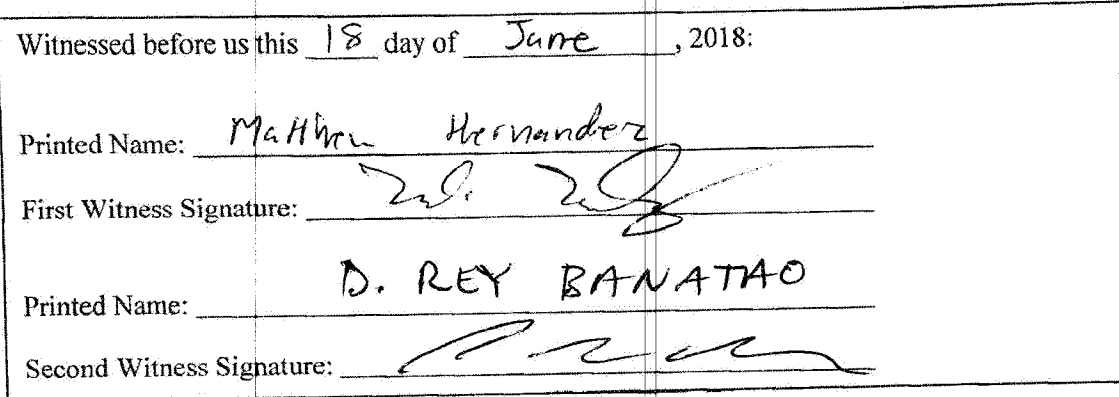 Witnessed before us this 18 day of June, 2018:
Printed Name: Matthew Hernandez
First Witness Signature:
Printed Name: D. REY BANATAO
Second Witness Signature: